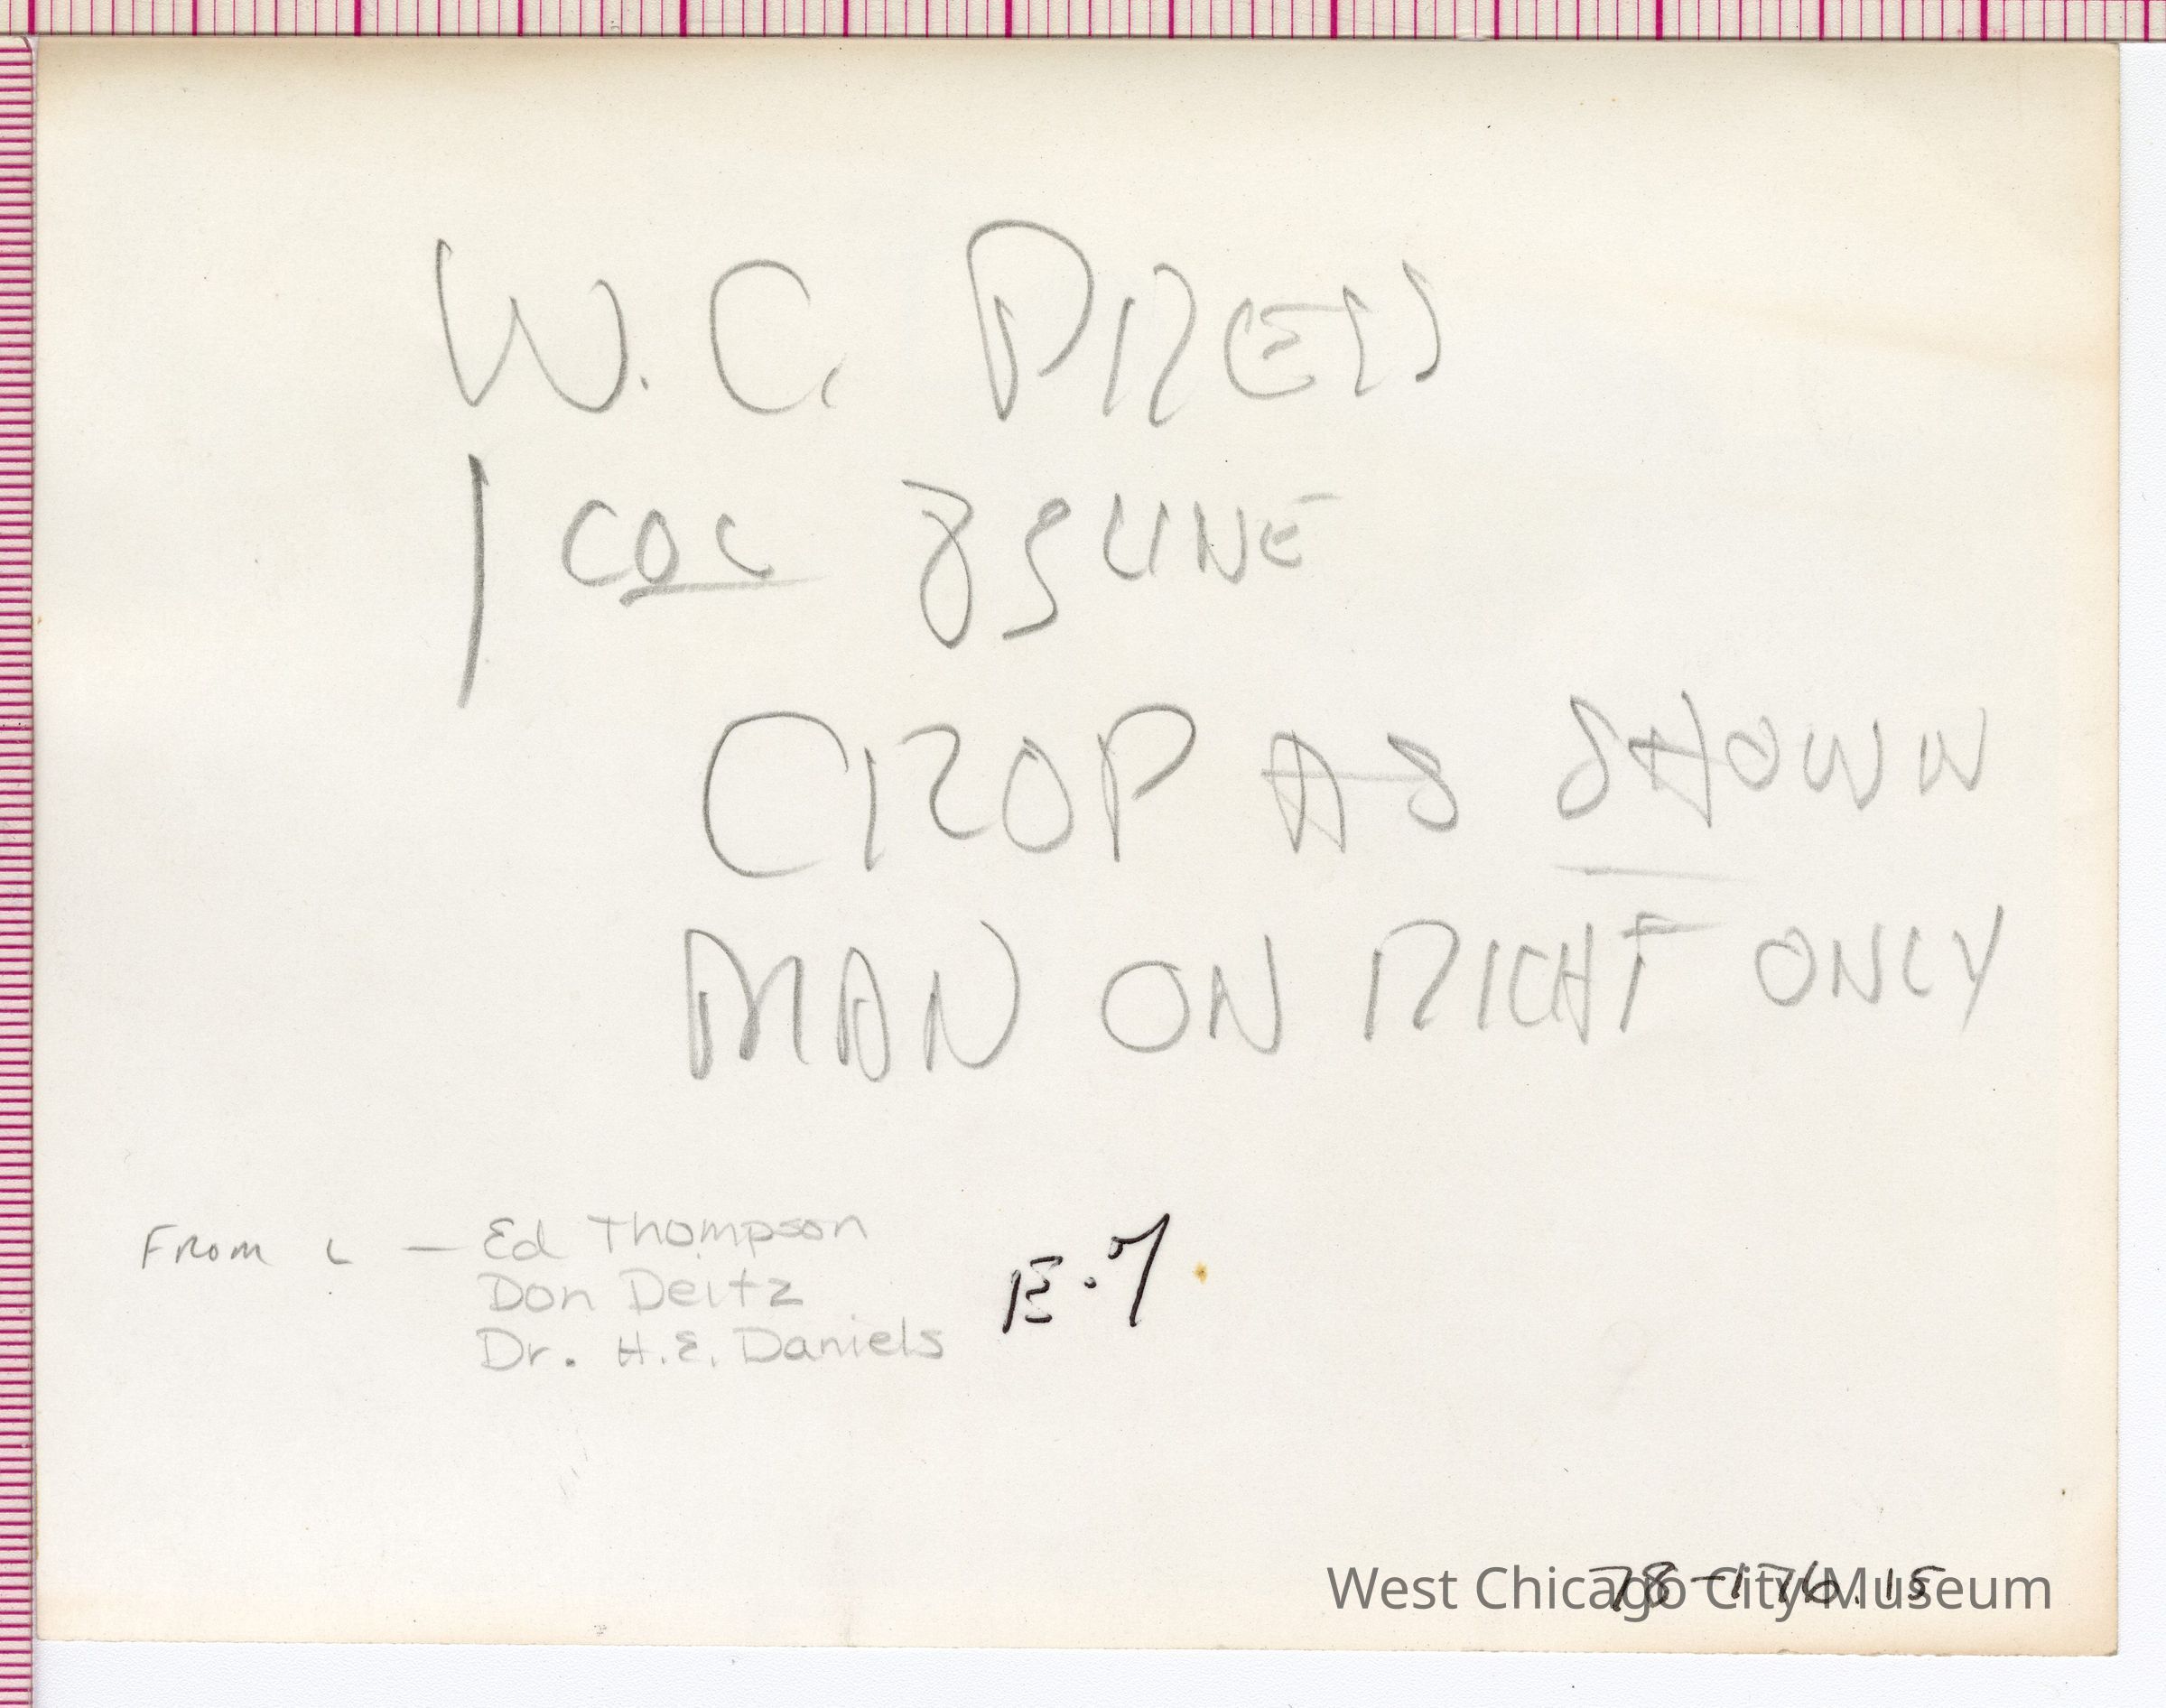 W.C. PRESS
1 COL 85 LINE
CROP AS SHOWN
MAN ON RIGHT ONLY
From L — Ed Thompson
Don Deitz
Dr. H.E. Daniels
E.7
78-176.15
West Chicago City Museum